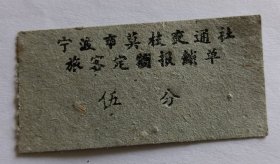 宁波市莫枝交通社
旅客定额报销单
伍分